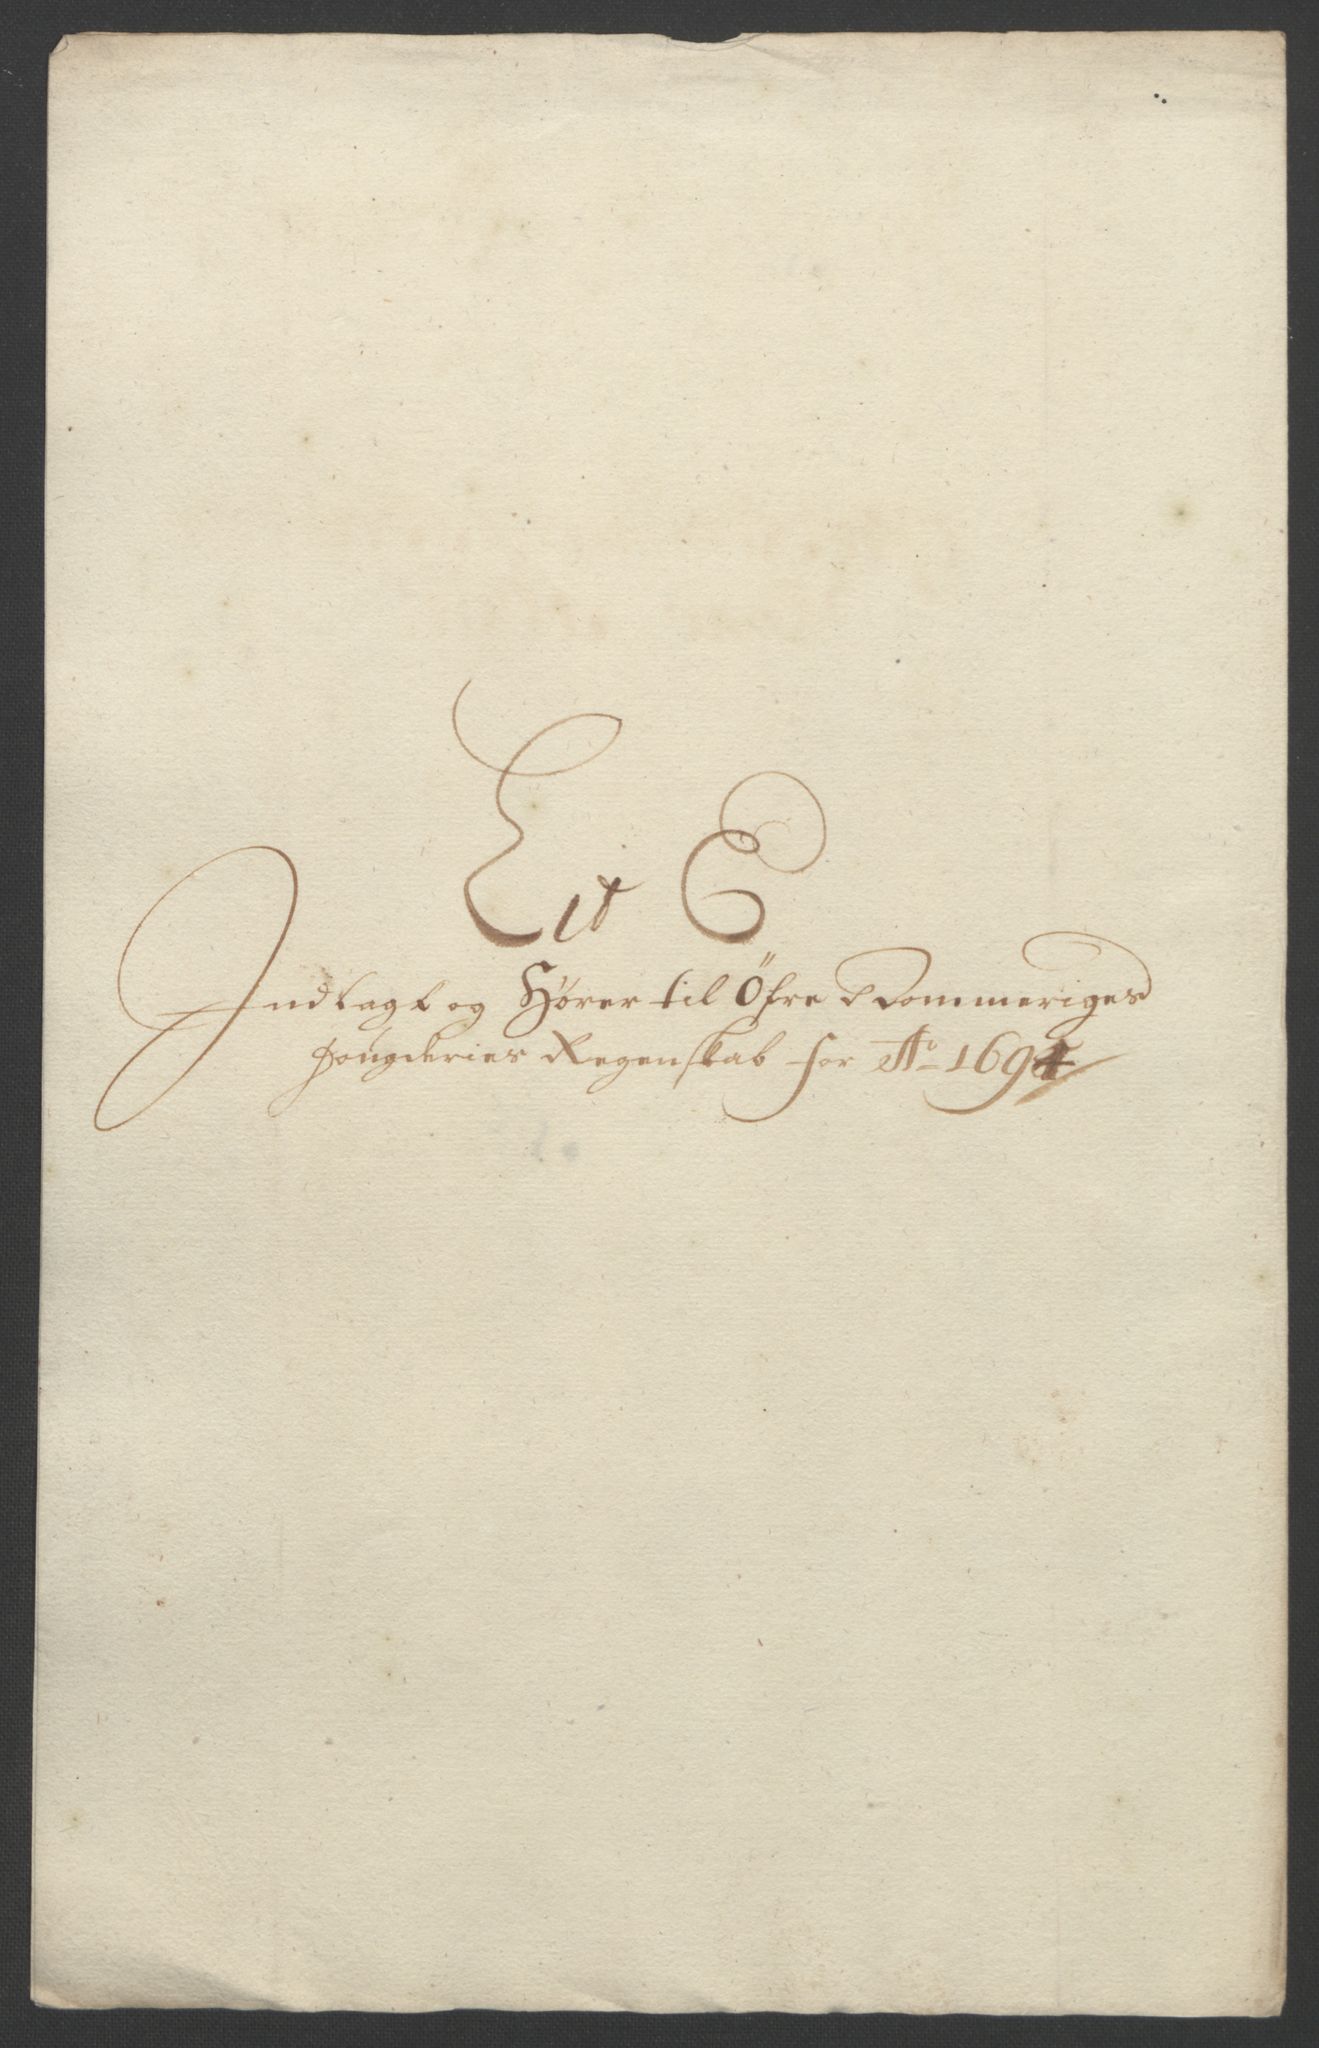 Lit E
Indlagt og Hører til Öfre Rommeriges
fougderies Regenskab for Ao 1694